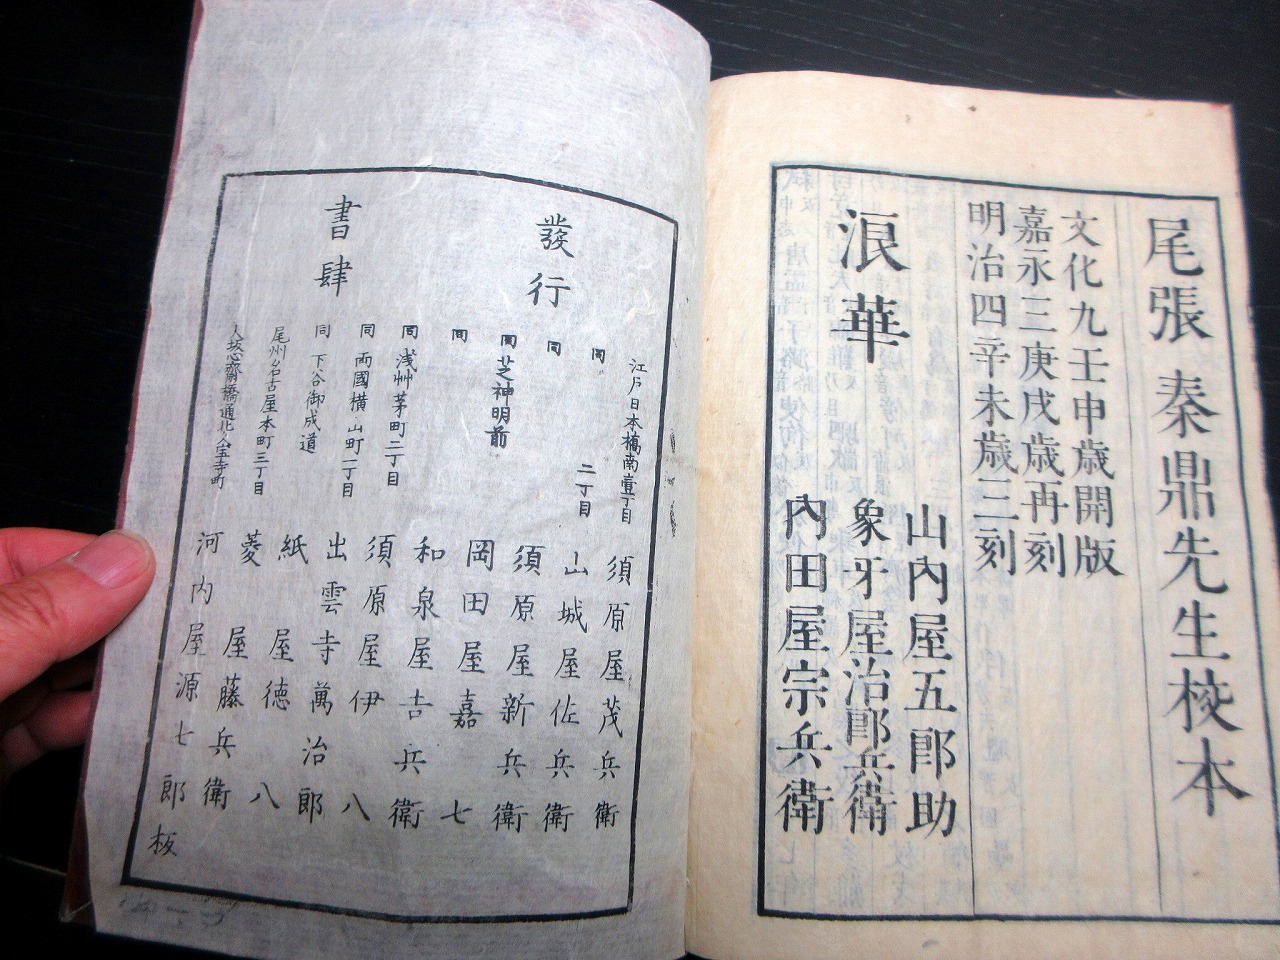 尾張 秦鼎先生校本
文化九壬申歳開版
嘉永三庚戌歳再刻
明治四辛未歳三刻
浪華
山内屋五郎助
象牙屋治郎兵衛
内田屋宗兵衛
發行
書肆
江戸日本橋南壹丁目 須原屋茂兵衛
同 二丁目 山城屋佐兵衛
同 須原屋新兵衛
同 芝神明前 岡田屋嘉七
同 浅艸茅町二丁目 和泉屋吉兵衛
同 両國横山町一丁目 須原屋伊八
同 下谷御成道 出雲寺萬治郎
紙屋徳八
尾州名古屋本町三丁目 菱屋藤兵衛
心齋橋通北久宝寺町 河内屋源七郎板